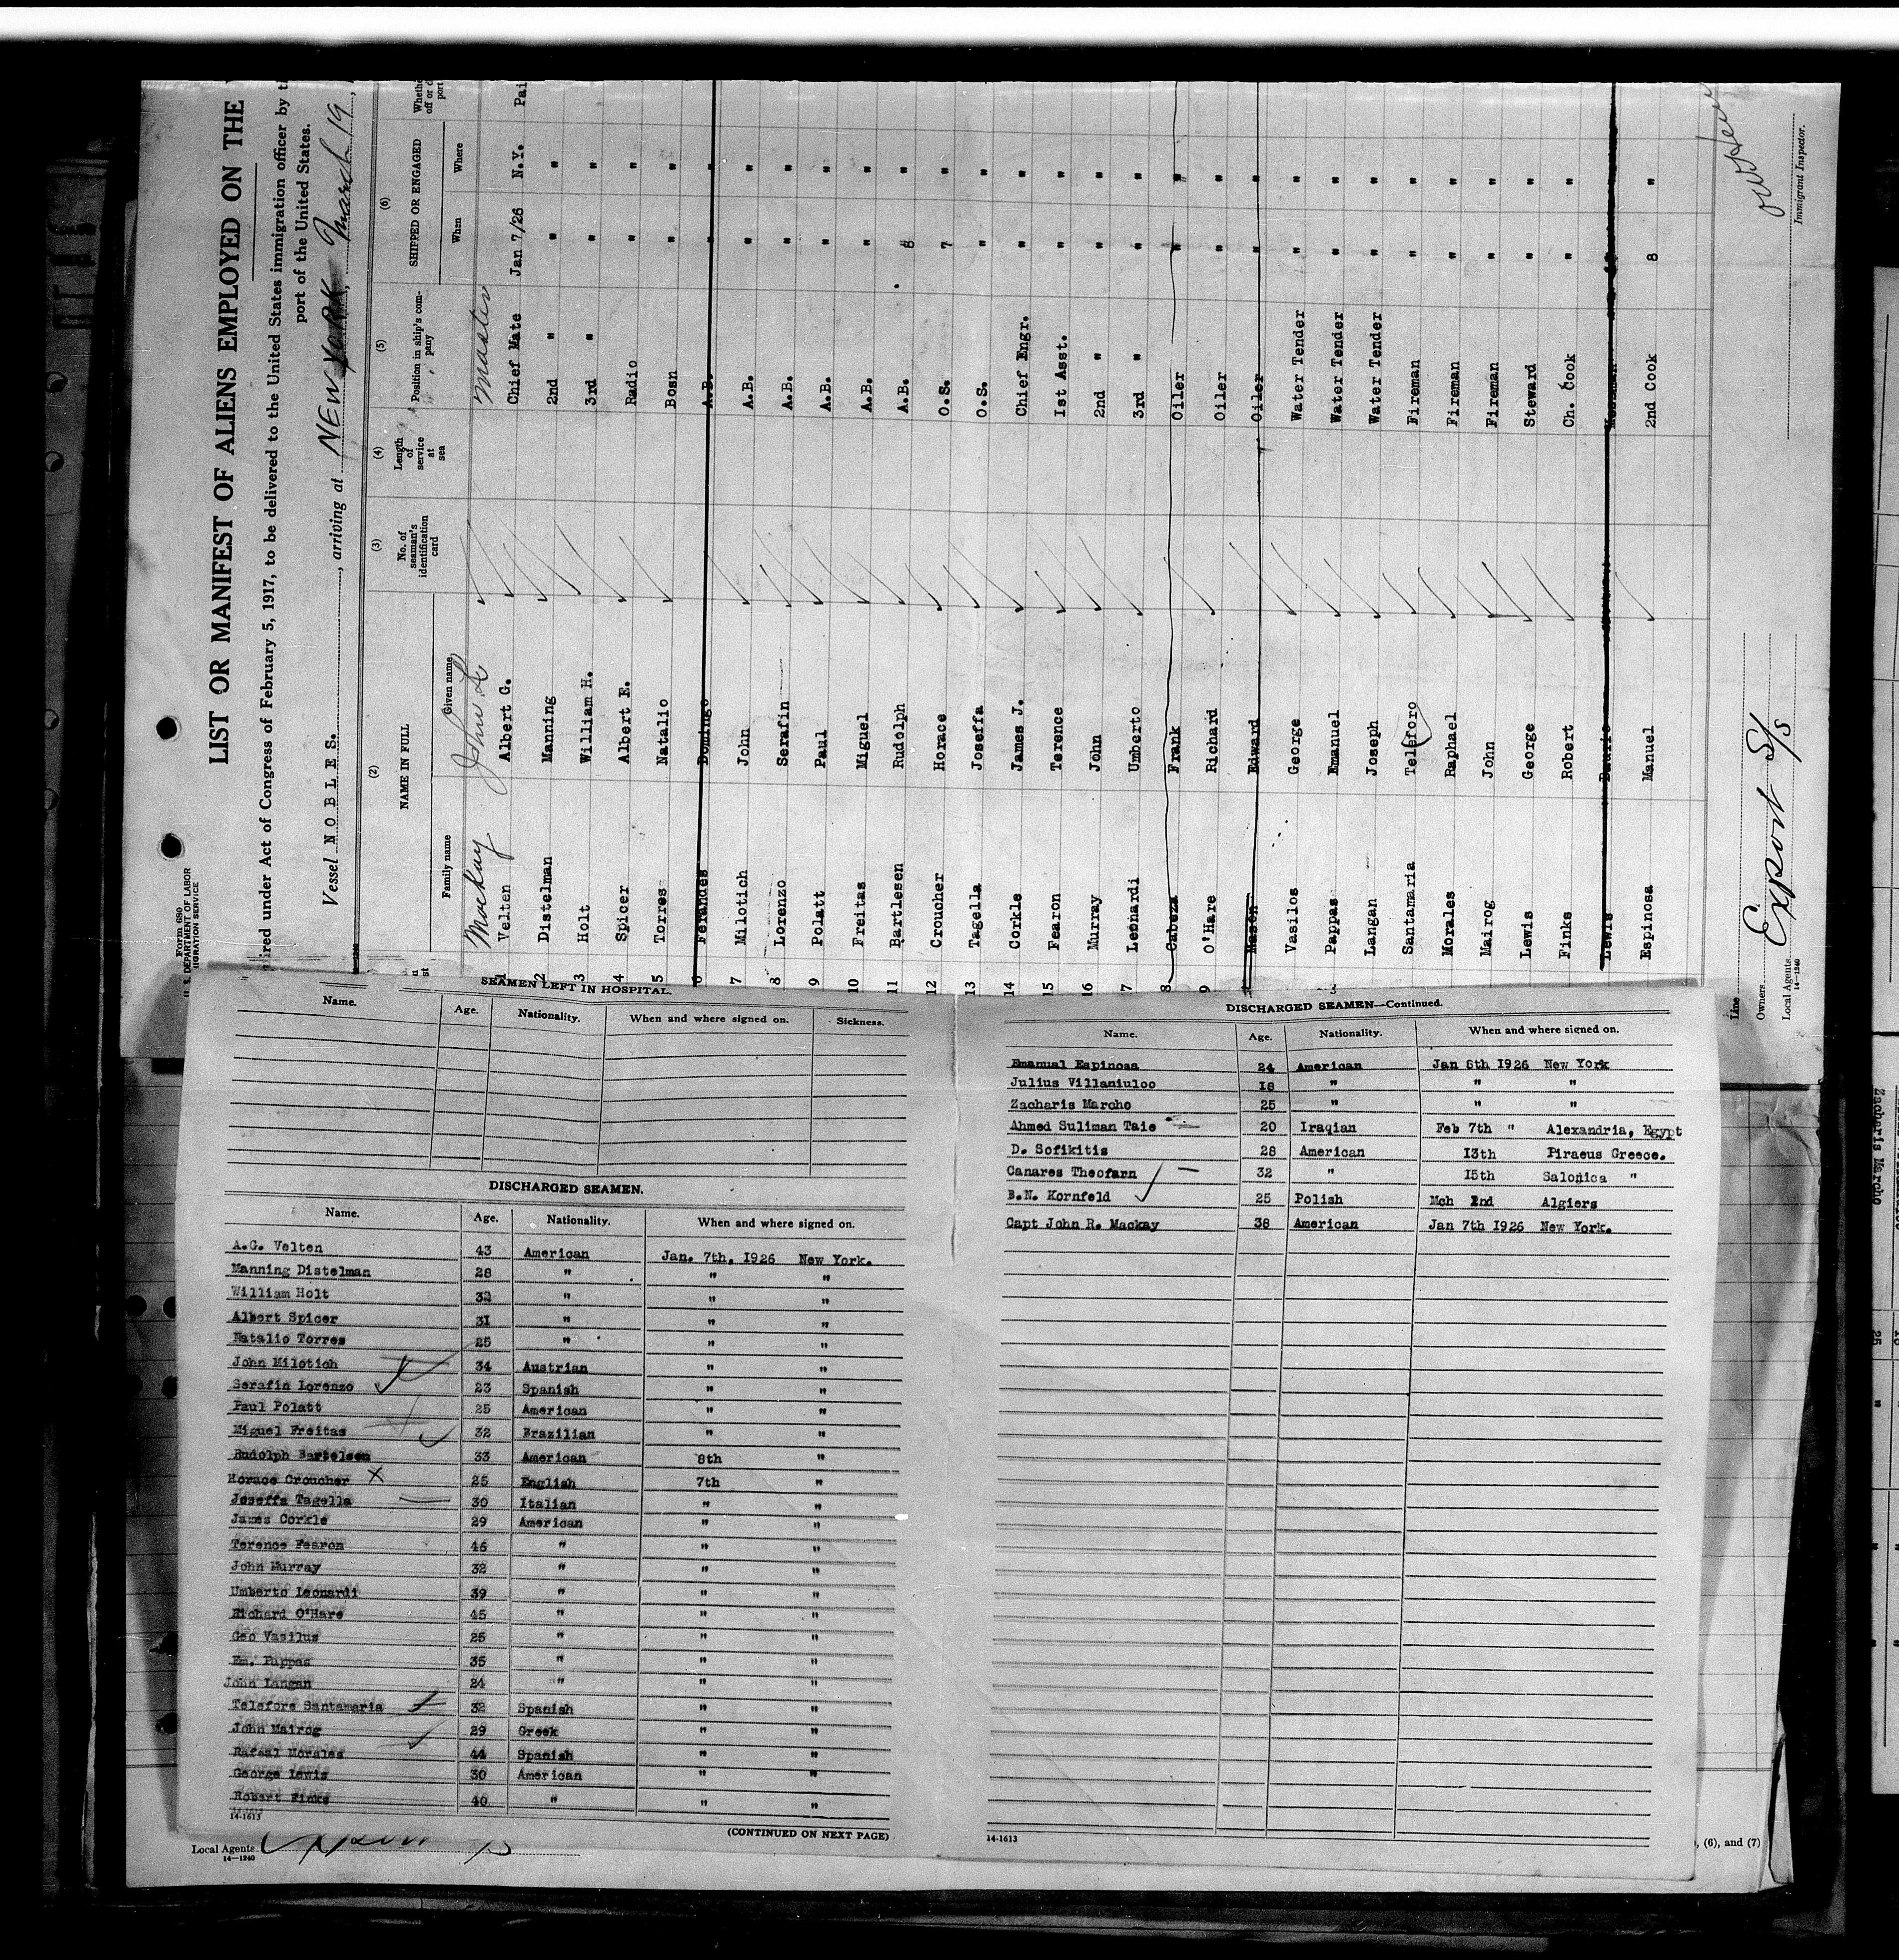 Form 680
U. S. DEPARTMENT OF LABOR
IGRATION SERVICE
LIST OR MANIFEST OF ALIENS EMPLOYED ON THE
ired under Act of Congress of February 5, 1917, to be delivered to the United States immigration officer by t
port of the United States.
Vessel NOBLES. , arriving at NEW YORK, March 19,
(2) (3) (4) (5) (6)
NAME IN FULL No. of seaman's identification card Length of service at sea Position in ship's company SHIPPED OR ENGAGED
Family name Given name When Where
Mackay John Master
1 Velten Albert G. Chief Mate Jan 7/26 N.Y. Pai
2 Distelman Manning 2nd " " "
3 Holt William H. 3rd " " "
4 Spicer Albert E. Radio " "
5 Torres Natalio Bosn " "
6 Fernandes Domingo A.B. " "
7 Milotich John A.B. " "
8 Lorenzo Serafin A.B. " "
9 Polatt Paul A.B. " "
10 Freitas Miguel A.B. " "
11 Bartlesen Rudolph A.B. 8 "
12 Croucher Horace O.S. 7 "
13 Tagella Joseffa O.S. " "
14 Corkle James J. Chief Engr. " "
15 Fearon Terence 1st Asst. " "
16 Murray John 2nd " " "
17 Leonardi Umberto 3rd " " "
8 Cabeza Frank Oiler " "
9 O'Hare Richard Oiler " "
Mason Edward Oiler " "
Vasilos George Water Tender " "
Pappas Emanuel Water Tender " "
Langan Joseph Water Tender " "
Santamaria Telesforo Fireman " "
Morales Raphael Fireman " "
Mairog John Fireman " "
Lewis George Steward " "
Finks Robert Ch. Cook " "
Lewis
Espinosa Manuel 2nd Cook 8 "
Line
Owners
Local Agents Export S/S
14—1240
Immigrant Inspector.
SEAMEN LEFT IN HOSPITAL.
Name. Age. Nationality. When and where signed on. Sickness.
DISCHARGED SEAMEN.
Name. Age. Nationality. When and where signed on.
A.G. Velten 43 American Jan. 7th, 1926 New York.
Manning Distelman 28 " " "
William Holt 32 " " "
Albert Spicer 31 " " "
Natalio Torres 25 " " "
John Milotich 34 Austrian " "
Serafin Lorenzo 23 Spanish " "
Paul Polatt 25 American " "
Miguel Freitas 32 Brazilian " "
Rudolph Bartelsen 33 American 8th "
Horace Croucher X 25 English 7th "
Joseffa Tagella 30 Italian " "
James Corkle 29 American " "
Terence Fearon 46 " " "
John Murray 32 " " "
Umberto Leonardi 39 " " "
Richard O'Hare 45 " " "
Geo Vasilus 25 " " "
Em. Pappas 35 " " "
John Langan 24 " " "
Telefore Santamaria 32 Spanish " "
John Mairog 29 Greek " "
Rafeal Morales 44 Spanish " "
George Lewis 30 American " "
Robert Finks 40 " " "
14-1613
(CONTINUED ON NEXT PAGE)
DISCHARGED SEAMEN—Continued.
Name. Age. Nationality. When and where signed on.
Emanual Espinosa 24 American Jan 8th 1926 New York
Julius Villaniuloo 18 " " "
Zacharis Marcho 25 " " "
Ahmed Suliman Taie 20 Iraqian Feb 7th " Alexandria, Egypt
D. Sofikitis 28 American 13th Piraeus Greece.
Canares Theofarn 32 " 15th Salonica "
B.N. Kornfeld 25 Polish Mch 2nd Algiers
Capt John R. Mackay 38 American Jan 7th 1926 New York.
14-1613
Local Agents
14—1240
, (6), and (7)
Zacheris Marcho 25